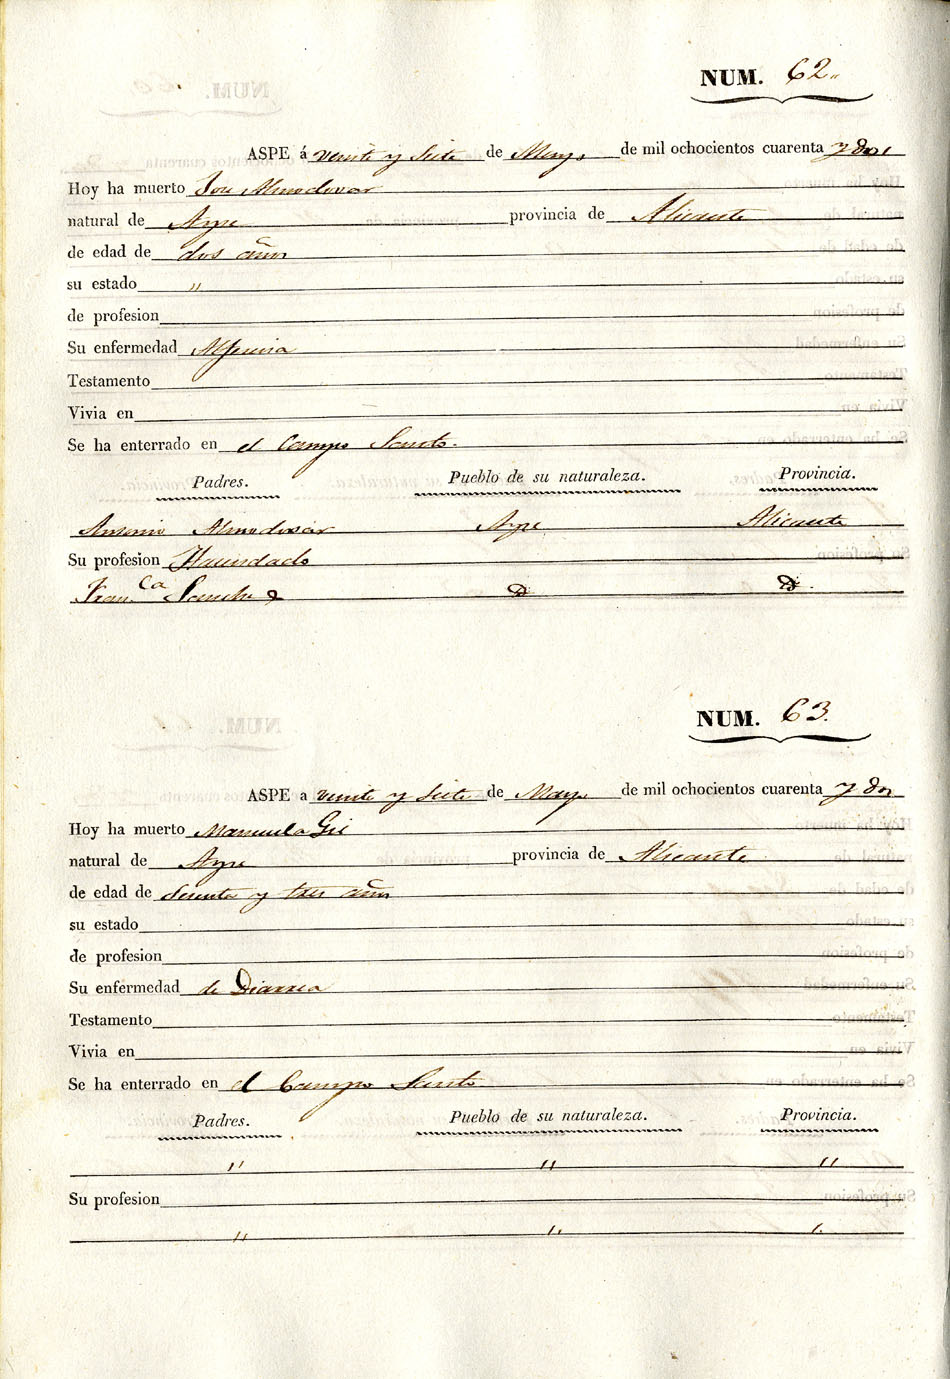 NUM. 62
ASPE á veinte y siete de Mayo de mil ochocientos cuarenta y dos
Hoy ha muerto Jose Almodovar
natural de Aspe provincia de Alicante
de edad de dos años
su estado "
de profesion
Su enfermedad
Testamento
Vivia en
Se ha enterrado en el Campo Santo.
Padres. Pueblo de su naturaleza. Provincia.
Antonio Almodovar Aspe Alicante
Su profesion Hacendado
Fran.ca Sanchez
NUM. 63.
ASPE a veinte y siete de Mayo de mil ochocientos cuarenta y dos
Hoy ha muerto Manuela Gil
natural de Aspe provincia de Alicante
de edad de y tres años
su estado
de profesion
Su enfermedad de Diarrea
Testamento
Vivia en
Se ha enterrado en el Campo Santo
Padres. Pueblo de su naturaleza. Provincia.
" " "
Su profesion
" " "